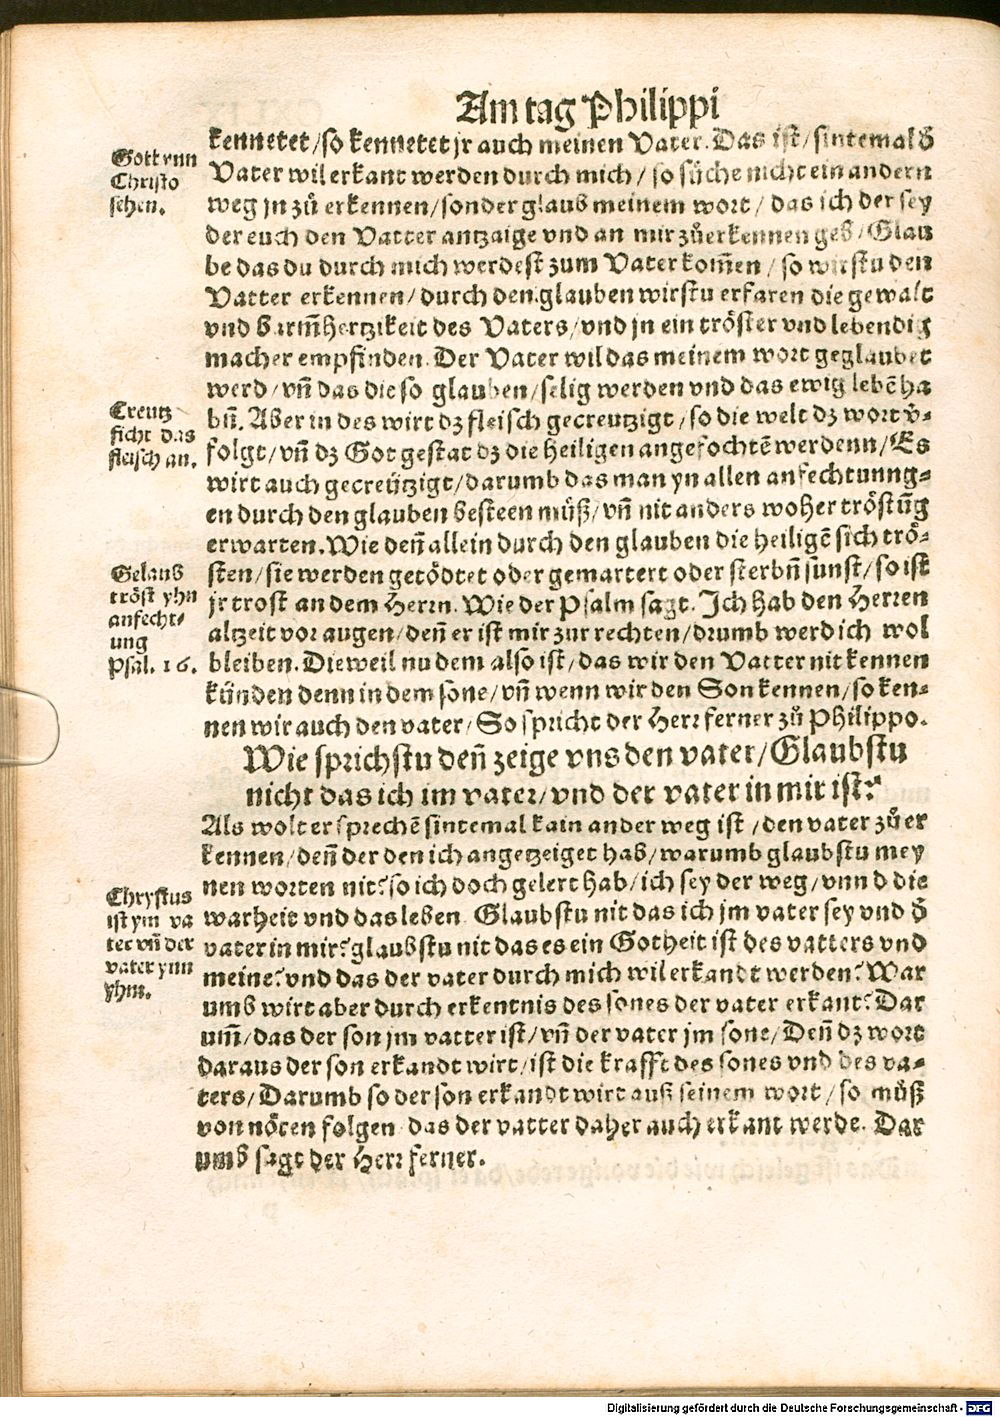 Am tag Philippi
kennetet/so kennetet jr auch meinen Vater. Das ist/sintemal d̕
Vater wil erkant werden durch mich/so sůche nicht ein andern
weg jn zů erkennen/sonder glaub meinem wort/das ich der sey
der euch den Vatter antzaige vnd an mir zůerkennen geb/Glau
be das du durch mich werdest zum Vater kom̄en/so wirstu den
Vatter erkennen/durch den glauben wirstu erfaren die gewalt
vnd barm̄hertzikeit des Vaters/vnd jn ein tröster vnd lebendig
macher empfinden. Der Vater wil das meinem wort geglaubet
werd/vn̄ das die so glauben/selig werden vnd das ewig lebē ha
bn̄. Aber in des wirt dz fleisch gecreutzigt/so die welt dz wort v̕-
folgt/vn̄ dz Got gestat dz die heiligen angefochtē werdenn/Es
wirt auch gecreützigt/darumb das man yn allen anfechtunng-
en durch den glauben besteen müß/vn̄ nit anders woher tröstūg
erwarten. Wie den̄ allein durch den glauben die heiligē sich trö-
sten/sie werden getödtet oder gemartert oder sterbn̄ sunst/so ist
jr trost an dem Herrn. Wie der Psalm sagt. Ich hab den Herren
altzeit vor augen/den̄ er ist mir zur rechten/drumb werd ich wol
bleiben. Dieweil nu dem also ist/das wir den Vatter nit kennen
künden denn in dem sone/vn̄ wenn wir den Son kennen/so ken-
nen wir auch den vater/So spricht der Herr ferner zů Philippo.
Wie sprichstu den̄ zeige vns den vater/Glaubstu
nicht das ich im vater/vnd der vater in mir ist?
Als wolt er sprechē sintemal kain ander weg ist/den vater zů er
kennen/den̄ der den ich angetzeiget hab/warumb glaubstu mey
nen worten nit? so ich doch gelert hab/ich sey der weg/vnn d die
warheit vnd das leben. Glaubstu nit das ich jm vater sey vnd d̕
vater in mir? glaubstu nit das es ein Gotheit ist des vatters vnd
meine? vnd das der vater durch mich wil erkandt werden? War
umb wirt aber durch erkentnis des sones der vater erkant? Dar
um̄/das der son jm vatter ist/vn̄ der vater jm sone/Den̄ dz wort
daraus der son erkandt wirt/ist die krafft des sones vnd des va-
ters/Darumb so der son erkandt wirt auß seinem wort/so müß
von nöten folgen das der vatter daher auch erkant werde. Dar
umb sagt der Herr ferner.
Gott ynn
Christo
sehen.
Creutz
ficht das
fleisch an.
Gelaub
tröst yhn
anfecht-
ung
Psal. 16.
Chrystus
ist ym va
ter vn̄ der
vater ynn
yhm.
Digitalisierung gefördert durch die Deutsche Forschungsgemeinschaft - DFG